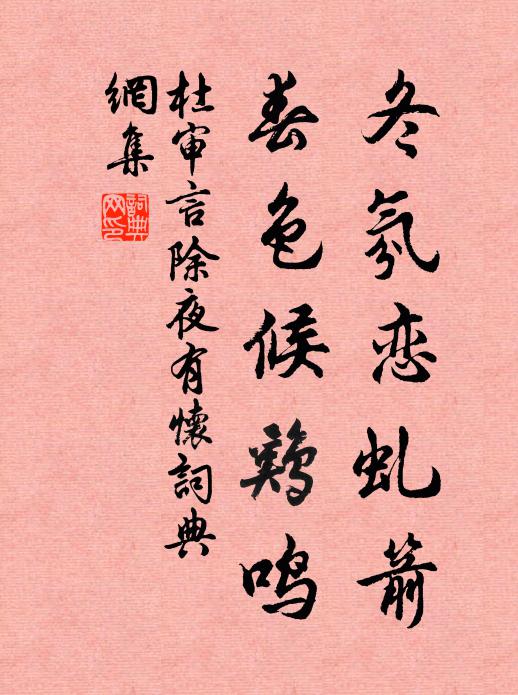 冬氛恋虬箭
春色候鷄鸣
杜审言除夜有懷詞典
網集
詞典
网印